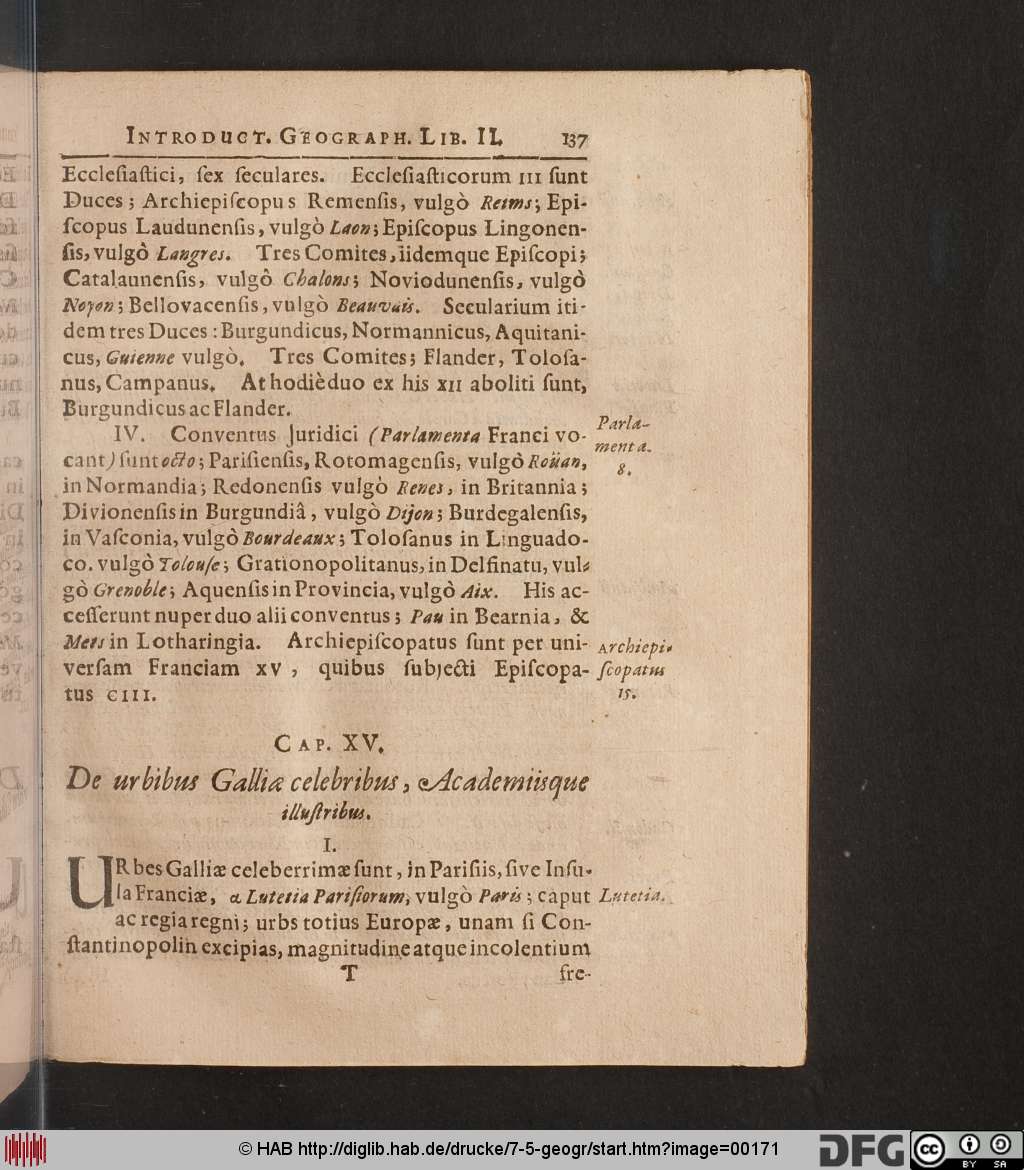 INTRODUCT. GEOGRAPH. LIB. II. 137
Eccleſiaſtici, ſex ſeculares. Eccleſiaſticorum III ſunt
Duces; Archiepiſcopus Remenſis, vulgò Reims; Epi-
ſcopus Laudunenſis, vulgò Laon; Epiſcopus Lingonen-
ſis, vulgò Langres. Tres Comites, iidemque Epiſcopi;
Catalaunenſis, vulgò Chalons; Noviodunenſis, vulgò
Noyon; Bellovacenſis, vulgò Beauvais. Secularium iti-
dem tres Duces: Burgundicus, Normannicus, Aquitani-
cus, Guienne vulgò. Tres Comites; Flander, Toloſa-
nus, Campanus. At hodiè duo ex his XII aboliti ſunt,
Burgundicus ac Flander.
IV. Conventus Juridici (Parlamenta Franci vo-
cant) ſunt octo; Pariſienſis, Rotomagenſis, vulgò Roüan,
in Normandia; Redonenſis vulgò Renes, in Britannia;
Divionenſis in Burgundiâ, vulgò Dijon; Burdegalenſis,
in Vaſconia, vulgò Bourdeaux; Toloſanus in Linguado-
co. vulgò Tolouſe; Grationopolitanus, in Delfinatu, vul-
gò Grenoble; Aquenſis in Provincia, vulgò Aix. His ac-
ceſſerunt nuper duo alii conventus; Pau in Bearnia, &
Mets in Lotharingia. Archiepiſcopatus ſunt per uni-
verſam Franciam XV, quibus ſubjecti Epiſcopa-
tus CIII.
Parla-
menta.
8.
Archiepi-
ſcopatus
15.
CAP. XV.
De urbibus Galliæ celebribus, Academiisque
illuſtribus.
I.
URbes Galliæ celeberrimæ ſunt, in Pariſiis, ſive Inſu-
la Franciæ, α Lutetia Pariſiorum, vulgò Paris; caput
ac regia regni; urbs totius Europæ, unam ſi Con-
ſtantinopolin excipias, magnitudine atque incolentium
Lutetia.
T fre-
© HAB http://diglib.hab.de/drucke/7-5-geogr/start.htm?image=00171
DFG
cc
BY SA